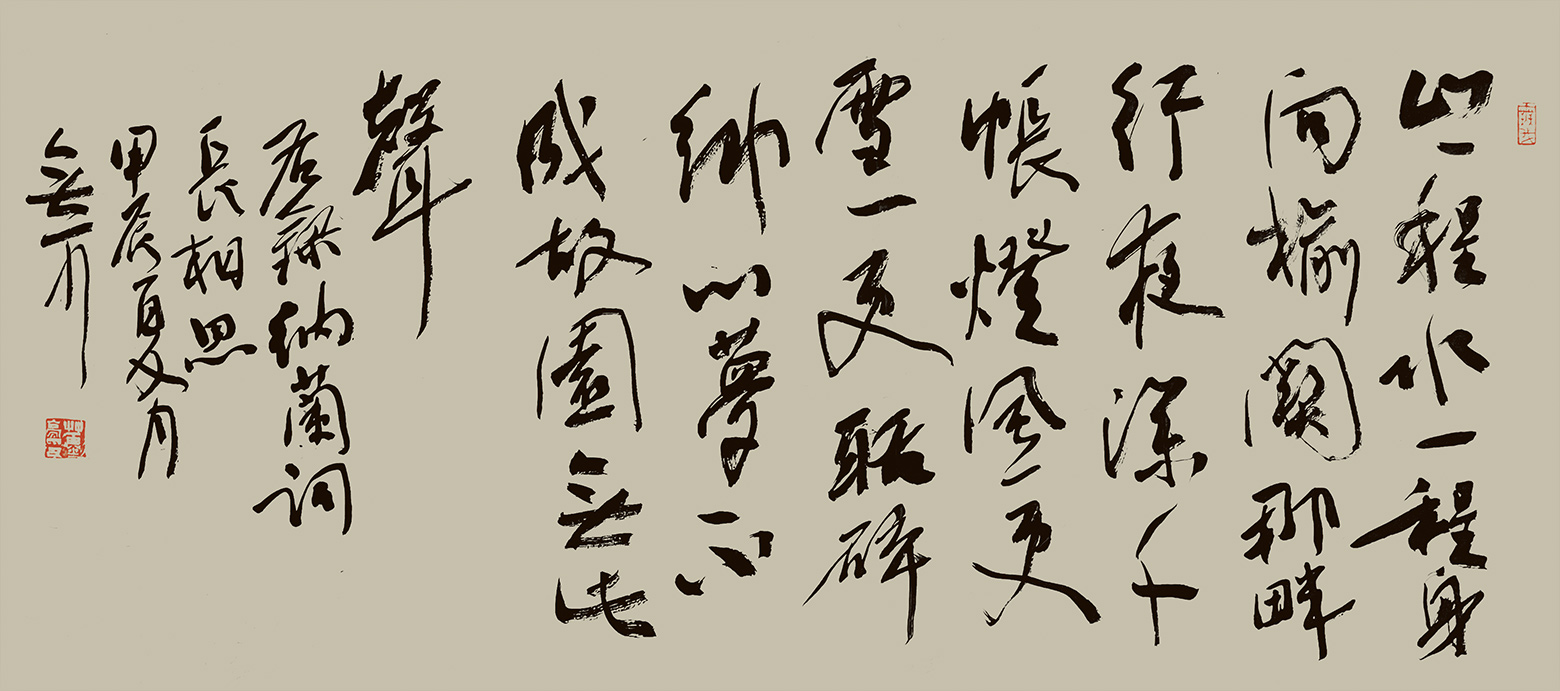 山一程水一程身
向榆關那畔
行夜深千
帳燈風一更
雪一更聒碎
鄉心夢不
成故園無此
聲
右錄納蘭詞
長相思
甲辰夏月
無一